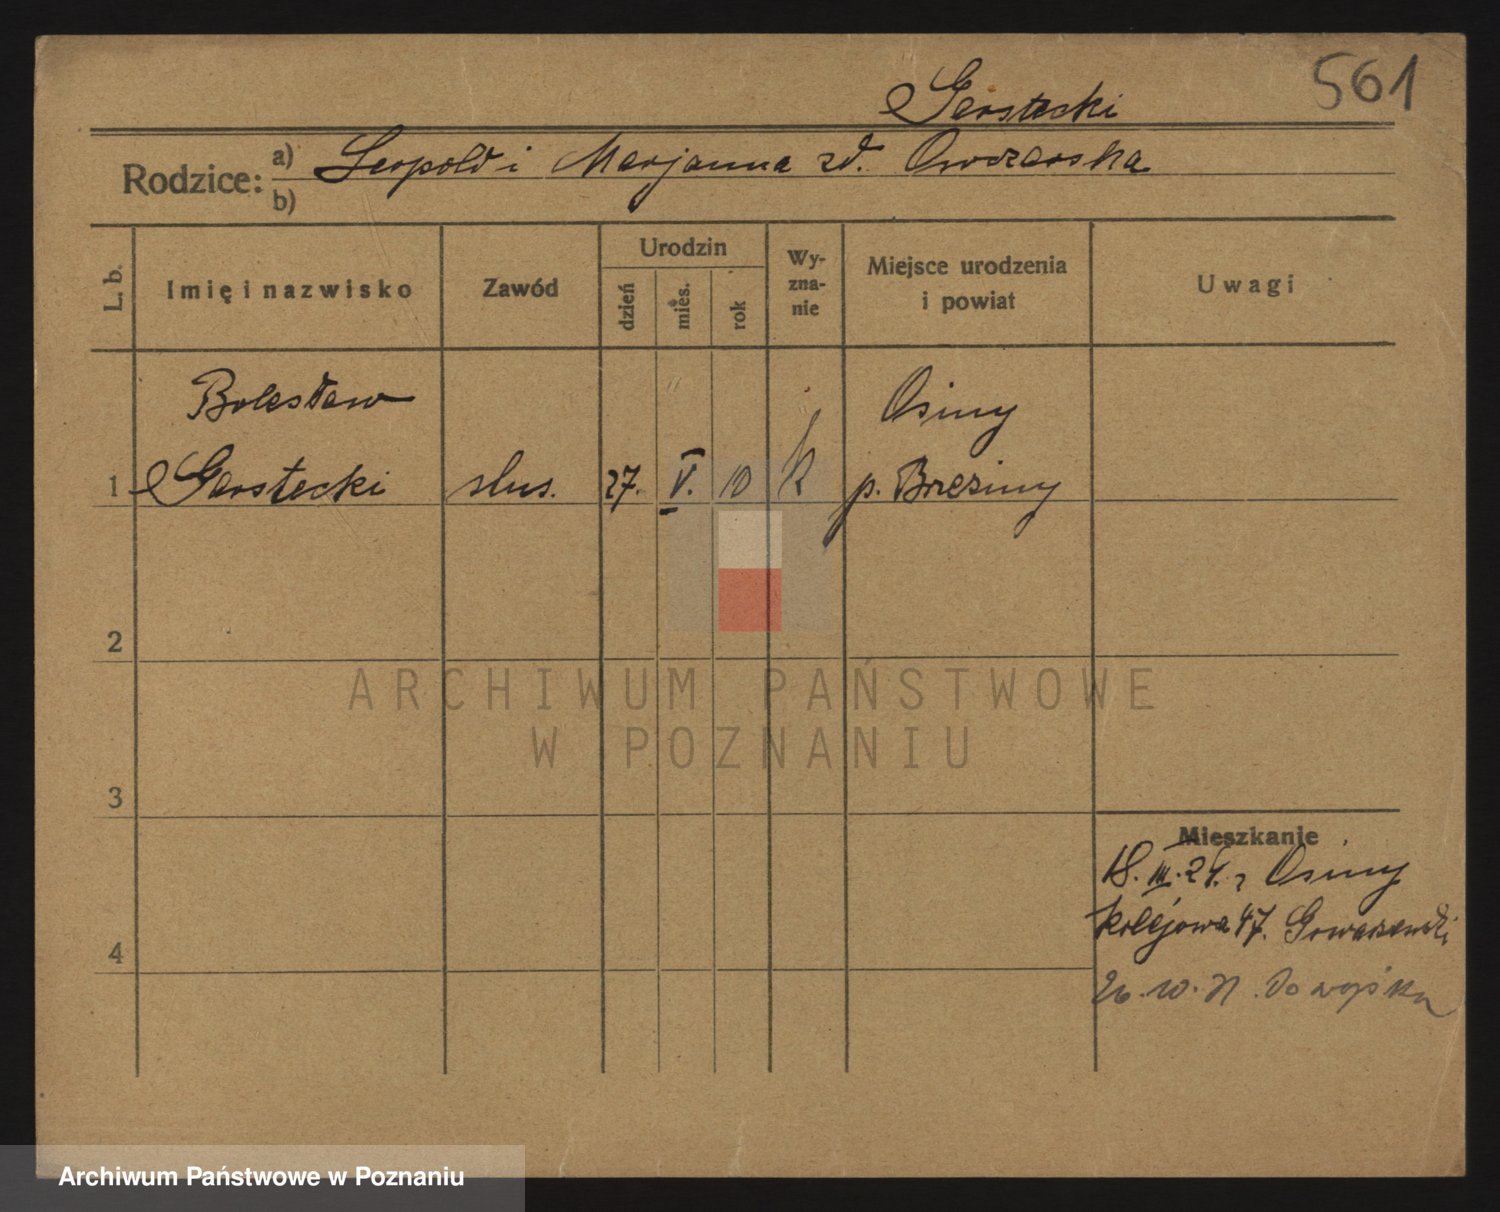 561
Gerstecki
Rodzice: a) Leopold i Marjanna zd. Owczarska
b)
L. b.
Imię i nazwisko
Zawód
Urodzin
dzień
mies.
rok
Wy-
zna-
nie
Miejsce urodzenia
i powiat
Uwagi
Bolesław
Osiny
1 Gerstecki slus. 27. V. 10 k p. Brzeziny
2
ARCHIWUM PAŃSTWOWE
W POZNANIU
3
Mieszkanie
18. III. 29. z Osiny
4
kolejowa 47.
26. 10. 31. Do wojska
Archiwum Państwowe w Poznaniu